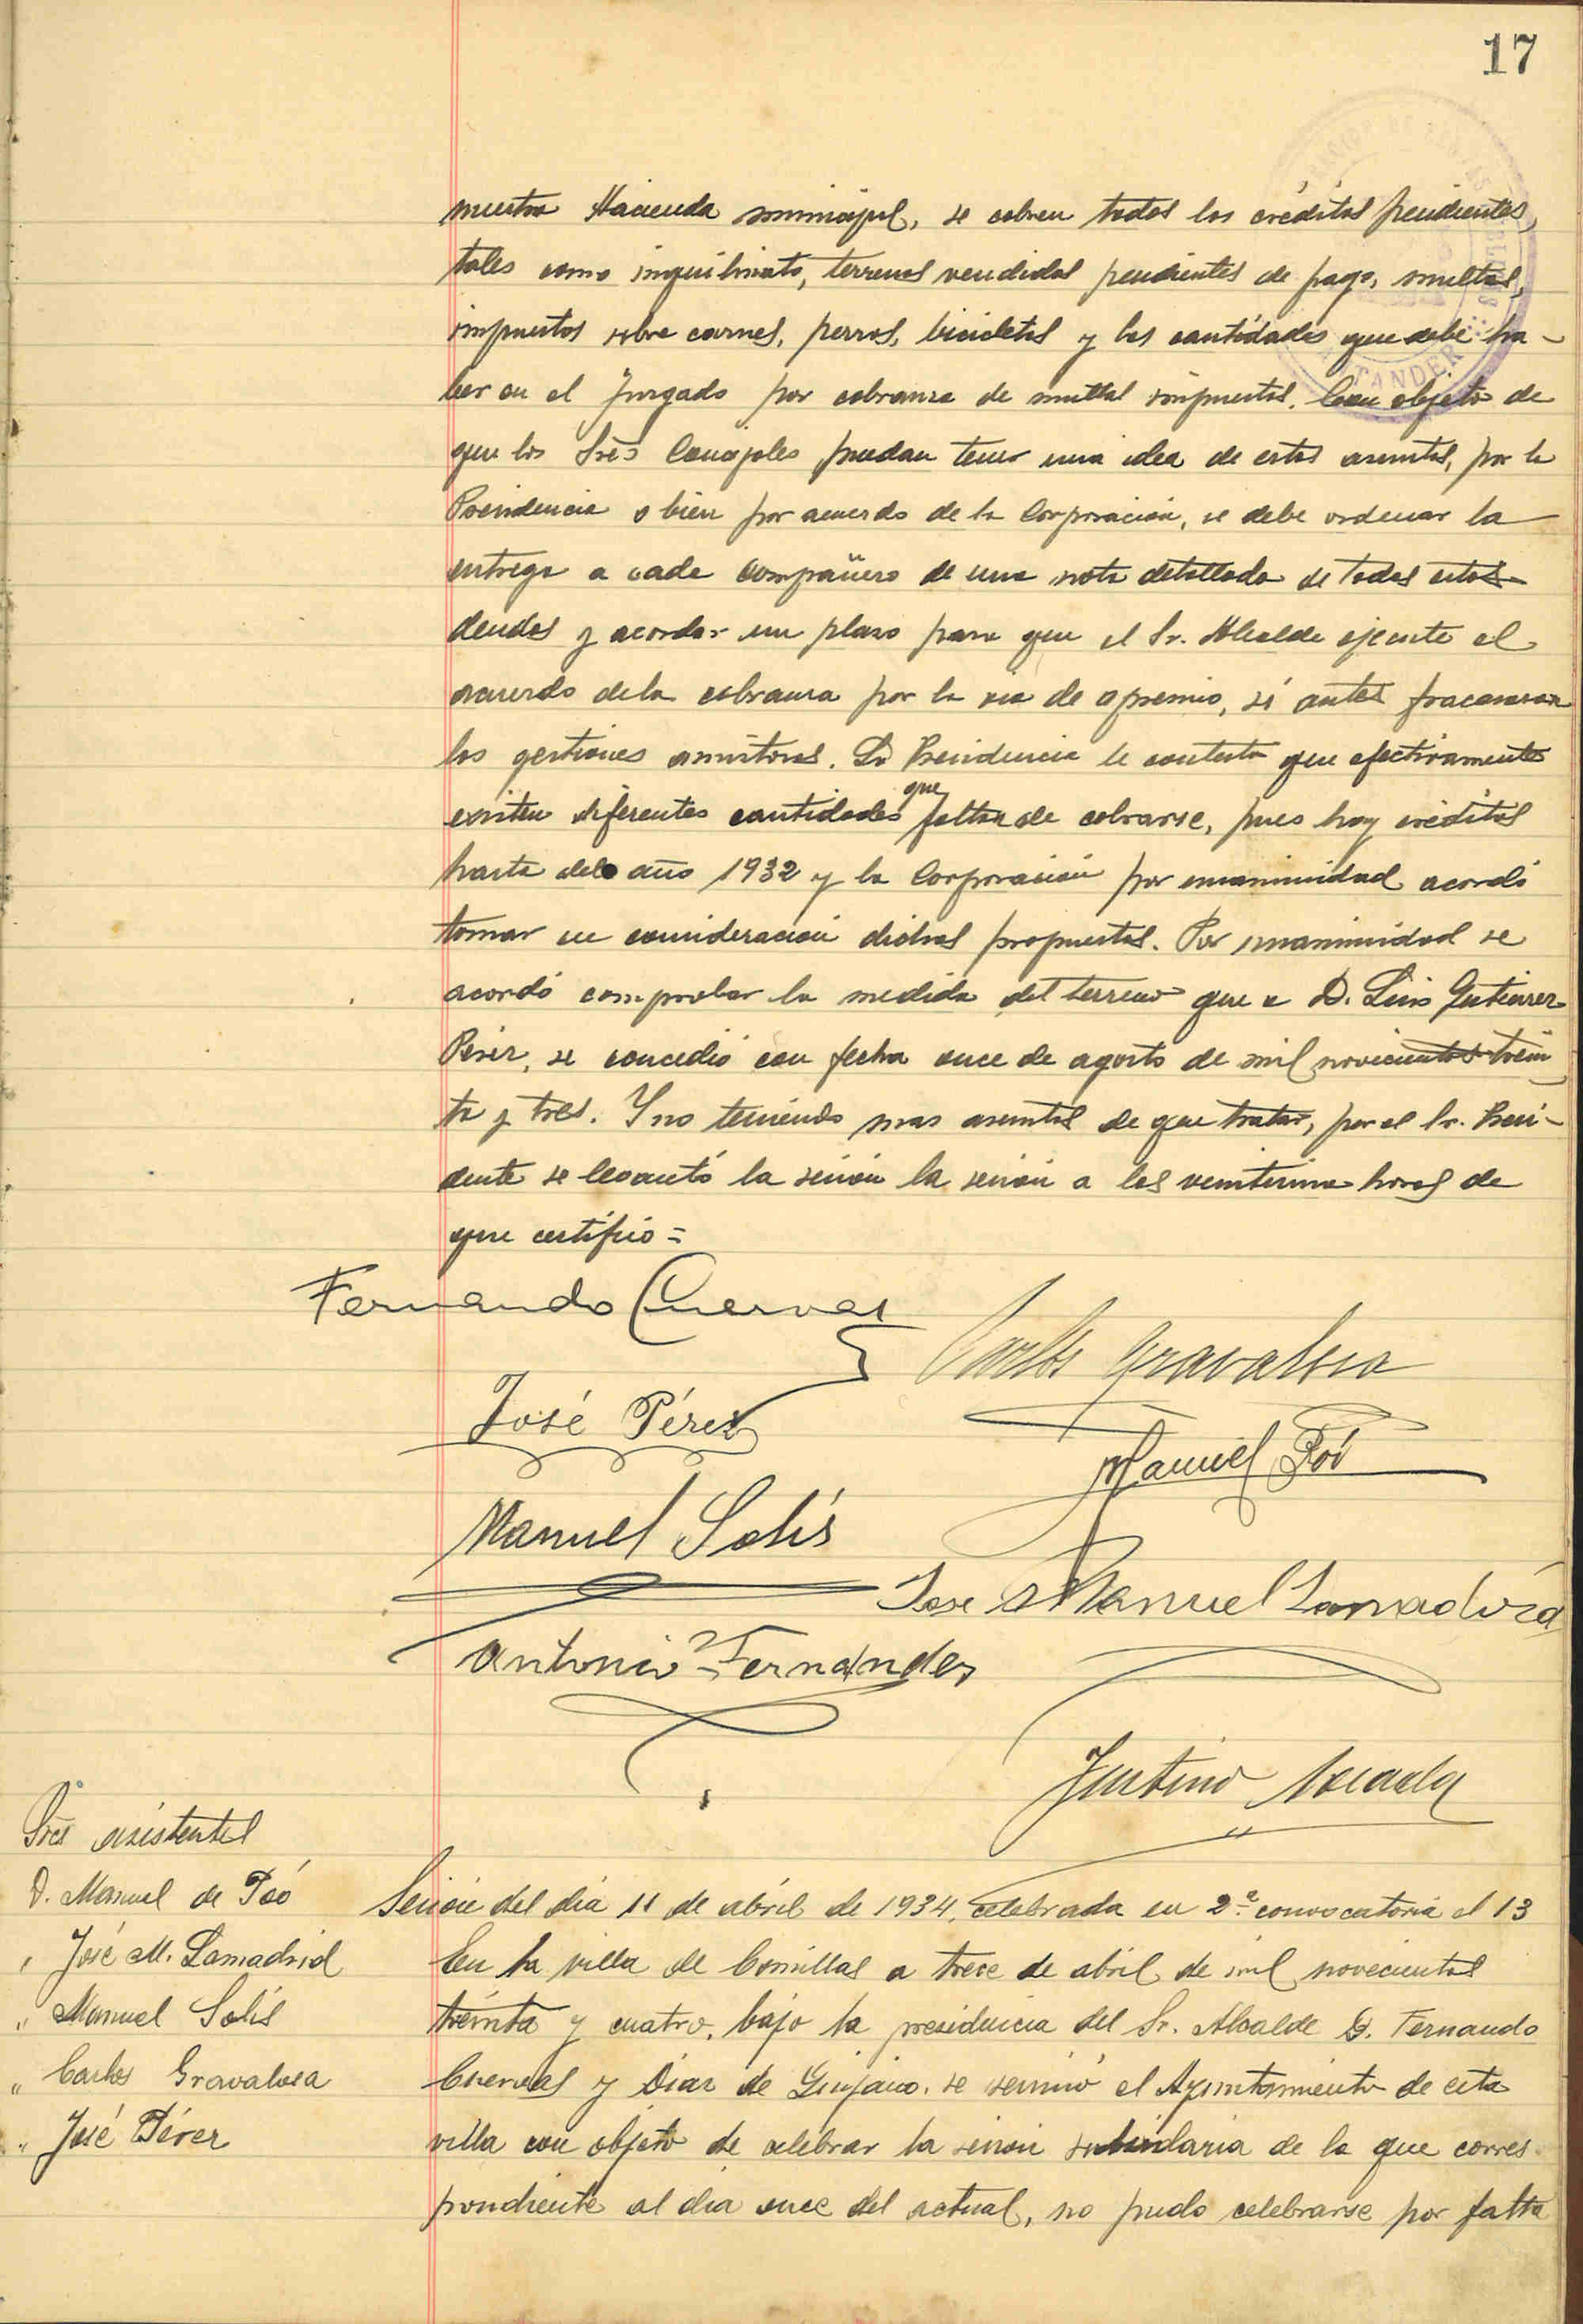 17
nuestra Hacienda municipal, se cobren todos los créditos pendientes,
tales como inquilinato, terrenos vendidos pendientes de pago, multas,
impuestos sobre carnes, perros, bicicletas y las cantidades que debe ha-
ber en el Juzgado por cobranza de multas impuestas. Con objeto de
que los Sres Concejales puedan tener una idea de estos asuntos, por la
Presidencia o bien por acuerdo de la Corporación, se debe ordenar la
entrega a cada compañero de una nota detallada de todas estas
deudas y acordar un plazo para que el Sr. Alcalde ejecute el
acuerdo de la cobranza por la via de apremio, si antes fracasaran
las gestiones amistosas. La Presidencia le contesta que efectivamente
existen diferentes cantidades que faltan de cobrarse, pues hay créditos
hasta del año 1932 y la Corporación por unanimidad acordó
tomar en consideración dichas propuestas. Por unanimidad se
acordó comprobar la medida del terreno que a D. Luis Gutierrez
Pérez, se concedió con fecha once de agosto de mil novecientos trein
ta y tres. Y no teniendo mas asuntos de que tratar, por el Sr. Presi-
dente se levantó la sesión la sesión a las veintiuna horas de
que certifico =
Fernando Cuevas
Carlos Gravalosa
José Pérez
Manuel Póo
Manuel Solís
Jose Manuel Lamadrid
Antonio Fernandez
Justino
Sres asistentes
D. Manuel de Póo
" José M. Lamadrid
" Manuel Solís
" Carlos Gravalosa
" José Pérez
Sesión del día 11 de abril de 1934, celebrada en 2ª convocatoria el 13
En la villa de Comillas a trece de abril de mil novecientos
treinta y cuatro, bajo la presidencia del Sr. Alcalde D. Fernando
Cuevas y Díaz de se reunió el Ayuntamiento de esta
villa con objeto de celebrar la sesión subsidiaria de la que corres-
pondiente al dia once del actual, no pudo celebrarse por falta